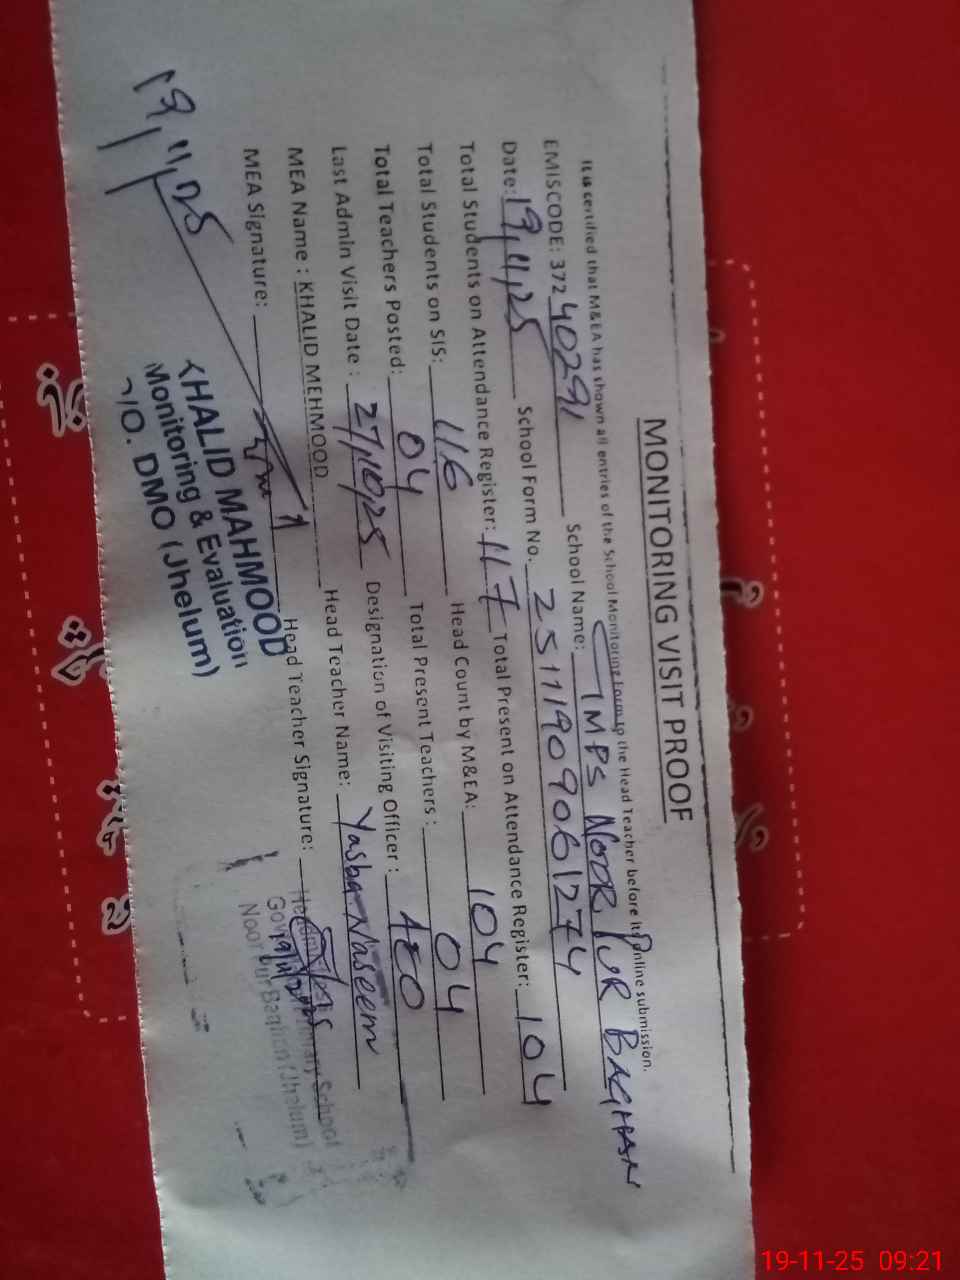 MONITORING VISIT PROOF
It is certified that M&EA has shown all entries of the School Monitoring Form to the Head Teacher before its online submission.
EMISCODE: 37240291 School Name: MPS NOOR PUR BAGHAN
Date: 19,11,25 School Form No. 25111909061274
Total Students on Attendance Register: 117 Total Present on Attendance Register: 104
Total Students on SIS: 116 Head Count by M&EA: 104
Total Teachers Posted: 04 Total Present Teachers: 04
Last Admin Visit Date: 27,10,25 Designation of Visiting Officer: AEO
MEA Name : KHALID MEHMOOD Head Teacher Name: Yasba Naseem
MEA Signature: Head Teacher Signature:
19,11,25
KHALID MAHMOOD
Monitoring & Evaluation
O/O. DMO (Jhelum)
Primary School
Noor Pur Baghan (Jhelum)
19-11-25 09:21